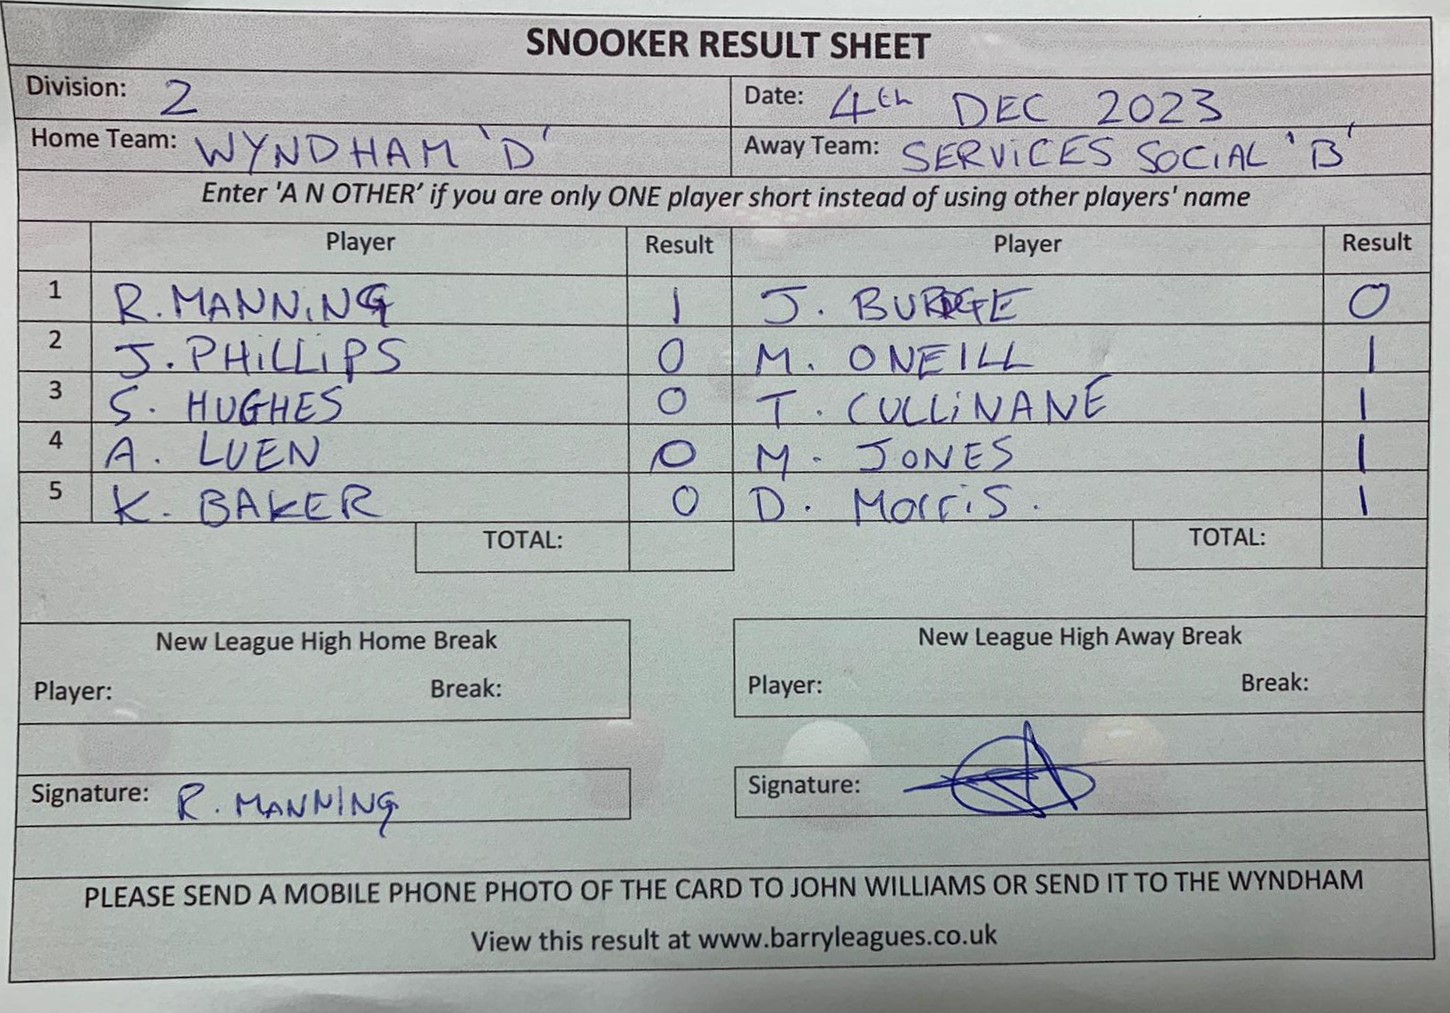 SNOOKER RESULT SHEET
Division: 2 Date: 4th DEC 2023
Home Team: WYNDHAM 'D' Away Team: SERVICES SOCIAL 'B'
Enter 'A N OTHER' if you are only ONE player short instead of using other players' name
Player Result Player Result
1 R. MANNING 1 J. 0
2 J. PHILLIPS 0 M. ONEILL 1
3 S. HUGHES 0 T. CULLINANE 1
4 A. LUEN 0 M. JONES 1
5 K. BAKER 0 D. Morris. 1
TOTAL: TOTAL:
New League High Home Break New League High Away Break
Player: Break: Player: Break:
Signature: R. MANNING Signature:
PLEASE SEND A MOBILE PHONE PHOTO OF THE CARD TO JOHN WILLIAMS OR SEND IT TO THE WYNDHAM
View this result at www.barryleagues.co.uk